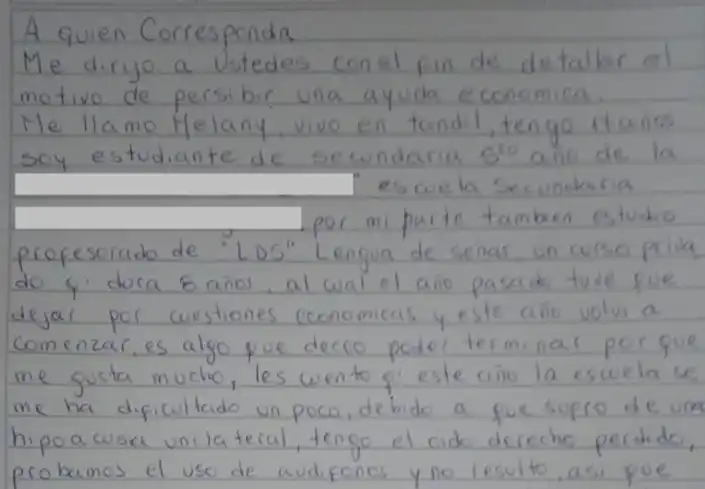 A quien Corresponda
Me dirijo a Ustedes con el fin de detallar el
motivo de persibir una ayuda economica.
Me llamo Melany, vivo en tandil, tengo años
soy estudiante de secundaria 6to año de la
escuela Secundaria
por mi parte tambien estudio
profesorado de "LDS" Lengua de señas un curso priva
do q' dura 5 años, al cual el año pasado tuve que
dejar por cuestiones economicas y este año volvi a
comenzar, es algo que deceo poder terminar por que
me gusta mucho, les cuento q' este año la escuela se
me ha dificultado un poco, debido a que sufro de una
hipoacusia unilateral, tengo el oido derecho perdido,
probamos el uso de audifonos y no resulto, asi que